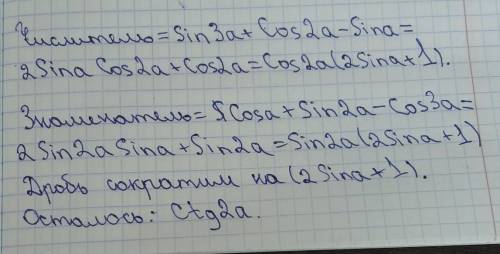 Числитель=Sin3a+Cos2a-Sina=
2Sina Cos2a+Cos2a=Cos2a(2Sina+1).
Знаменатель=Cosa+Sin2a-Cos3a=
2Sin2a Sina+Sin2a=Sin2a(2Sina+1)
Дробь сократим на (2Sina+1).
Осталось: Ctg2a.